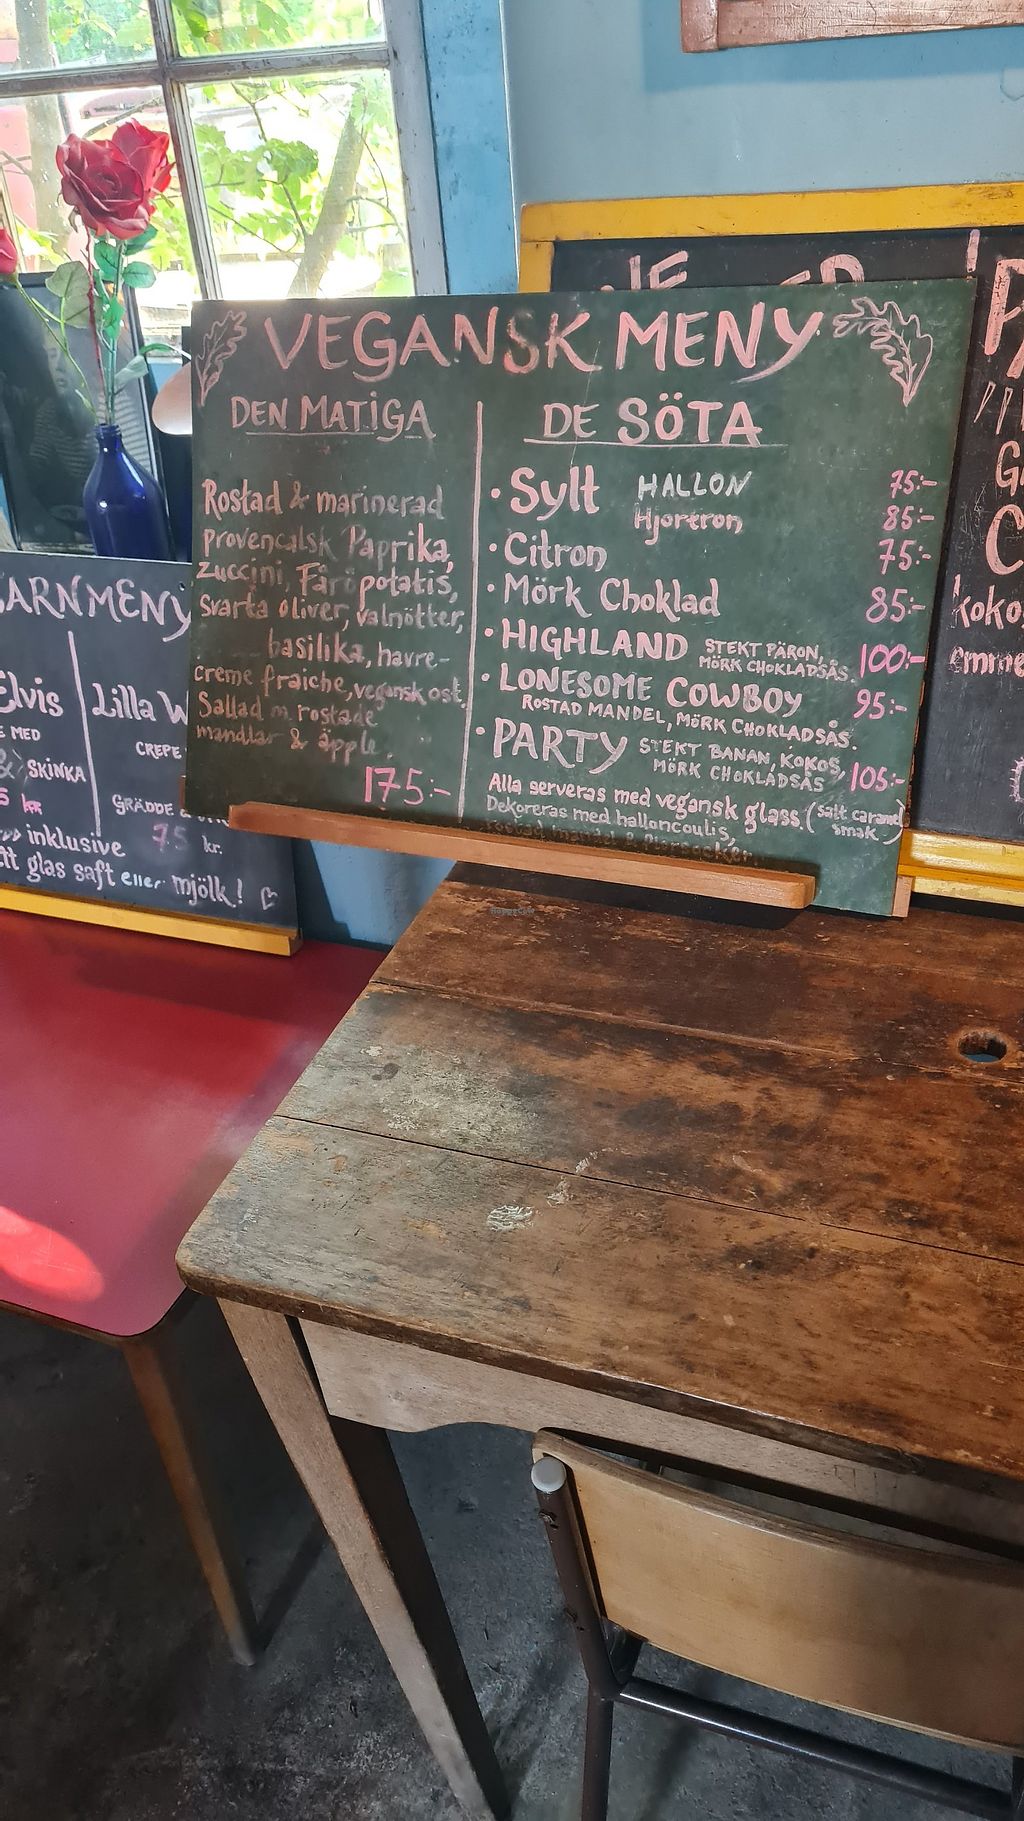 VEGANSK MENY
DEN MATIGA
Rostad & marinerad
provencalsk Paprika,
zuccini, Fårö potatis,
Svarta oliver, valnötter,
basilika, havre-
creme fraiche, vegansk ost.
Sallad m rostade
mandlar & äpple.
175:-
DE SÖTA
• Sylt HALLON 75:-
Hjortron 85:-
• Citron 75:-
• Mörk Choklad 85:-
• HIGHLAND STEKT PÄRON,
MÖRK CHOKLADSÅS. 100:-
• LONESOME COWBOY 95:-
ROSTAD MANDEL, MÖRK CHOKLADSÅS.
• PARTY STEKT BANAN, KOKOS,
MÖRK CHOKLADSÅS 105:-
Alla serveras med vegansk glass. (Salt caramel
smak)
Dekoreras med halloncoulis,
rostad mandel &
ARNMENY
Elvis
E MED
& SKINKA
5 kr
Lilla W
CREPE
GRÄDDE &
75 kr.
inklusive
glas saft eller mjölk!
koko
HappyCow